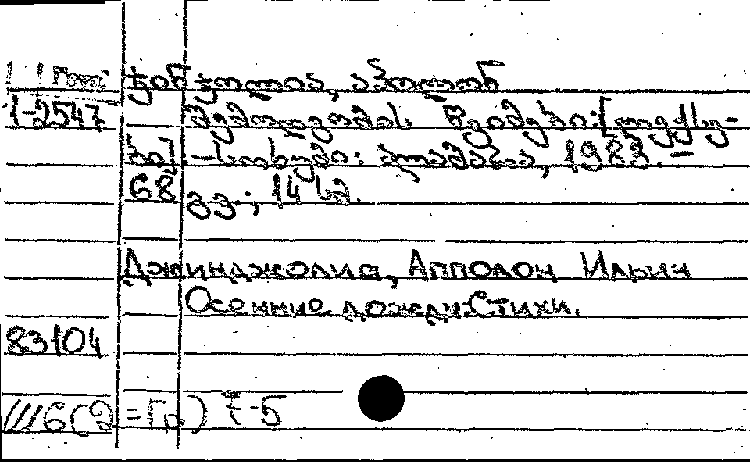 ჯინჯოლია, აპოლონ
1-2547 შემოდგომის წვიმები: [ლექსე-
ბი]. - სოხუმი: ალაშარა, 1983. -
68 გვ.; 14 სმ.
Джинджолия, Апполон Ильич
Осенние дожди: Стихи.
83104
6(2=Гр) 7-5